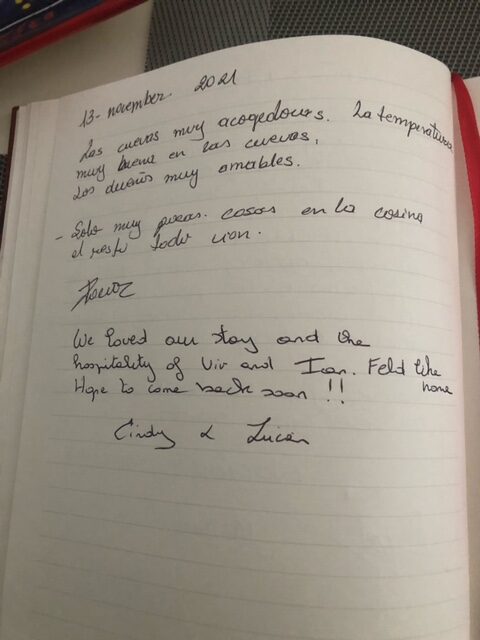 13-november. 2021
Las cuevas muy acogedours. La temperatura
muy buena en las cuevas,
Los dueños muy amables.
- Solo muy pocas. cosas en la cosina
el resto todo
We loved our stay and the
hospitality of Viv and Ian. Feld like
home
Hope to come back soon !!
Cindy & Lucien